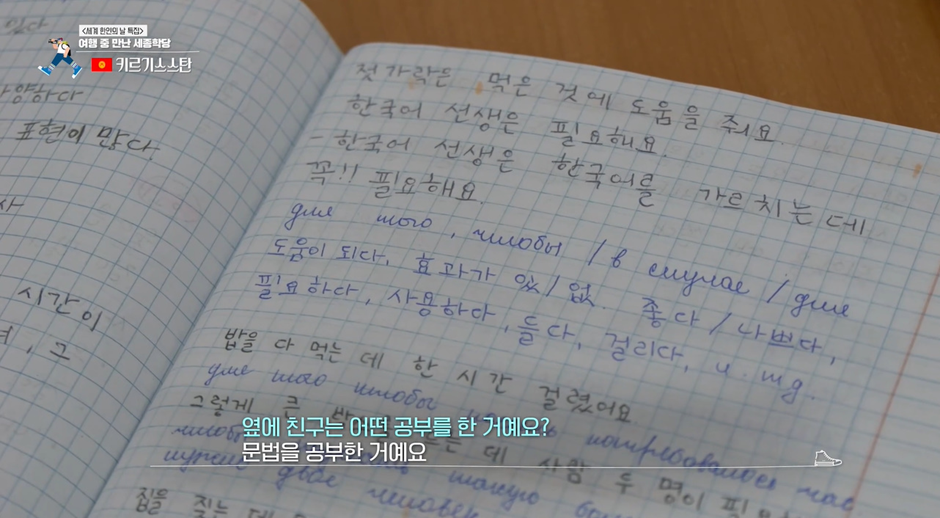 <세계 한인의 날 특집>
여행 중 만난 세종학당
키르기스스탄
있다
양하다
표현이 많다.
사
시간이
, 그
젓가락은 먹은 것에 도움을 줘요.
한국어 선생은 필요해요.
- 한국어 선생은 한국어를 가르치는 데
꼭!! 필요해요.
для того, чтобы / в случае / для
도움이 되다, 효과가 있/없. 좋다 / 나쁘다,
필요하다, 사용하다, 들다, 걸리다, и тд.
밥을 다 먹는 데 한 시간 걸렸어요.
для того чтобы потребовалось час
그렇게 큰 데 사람 두 명이
чтобы такую
нужно двое человек
집을 짓는 데
옆에 친구는 어떤 공부를 한 거예요?
문법을 공부한 거예요